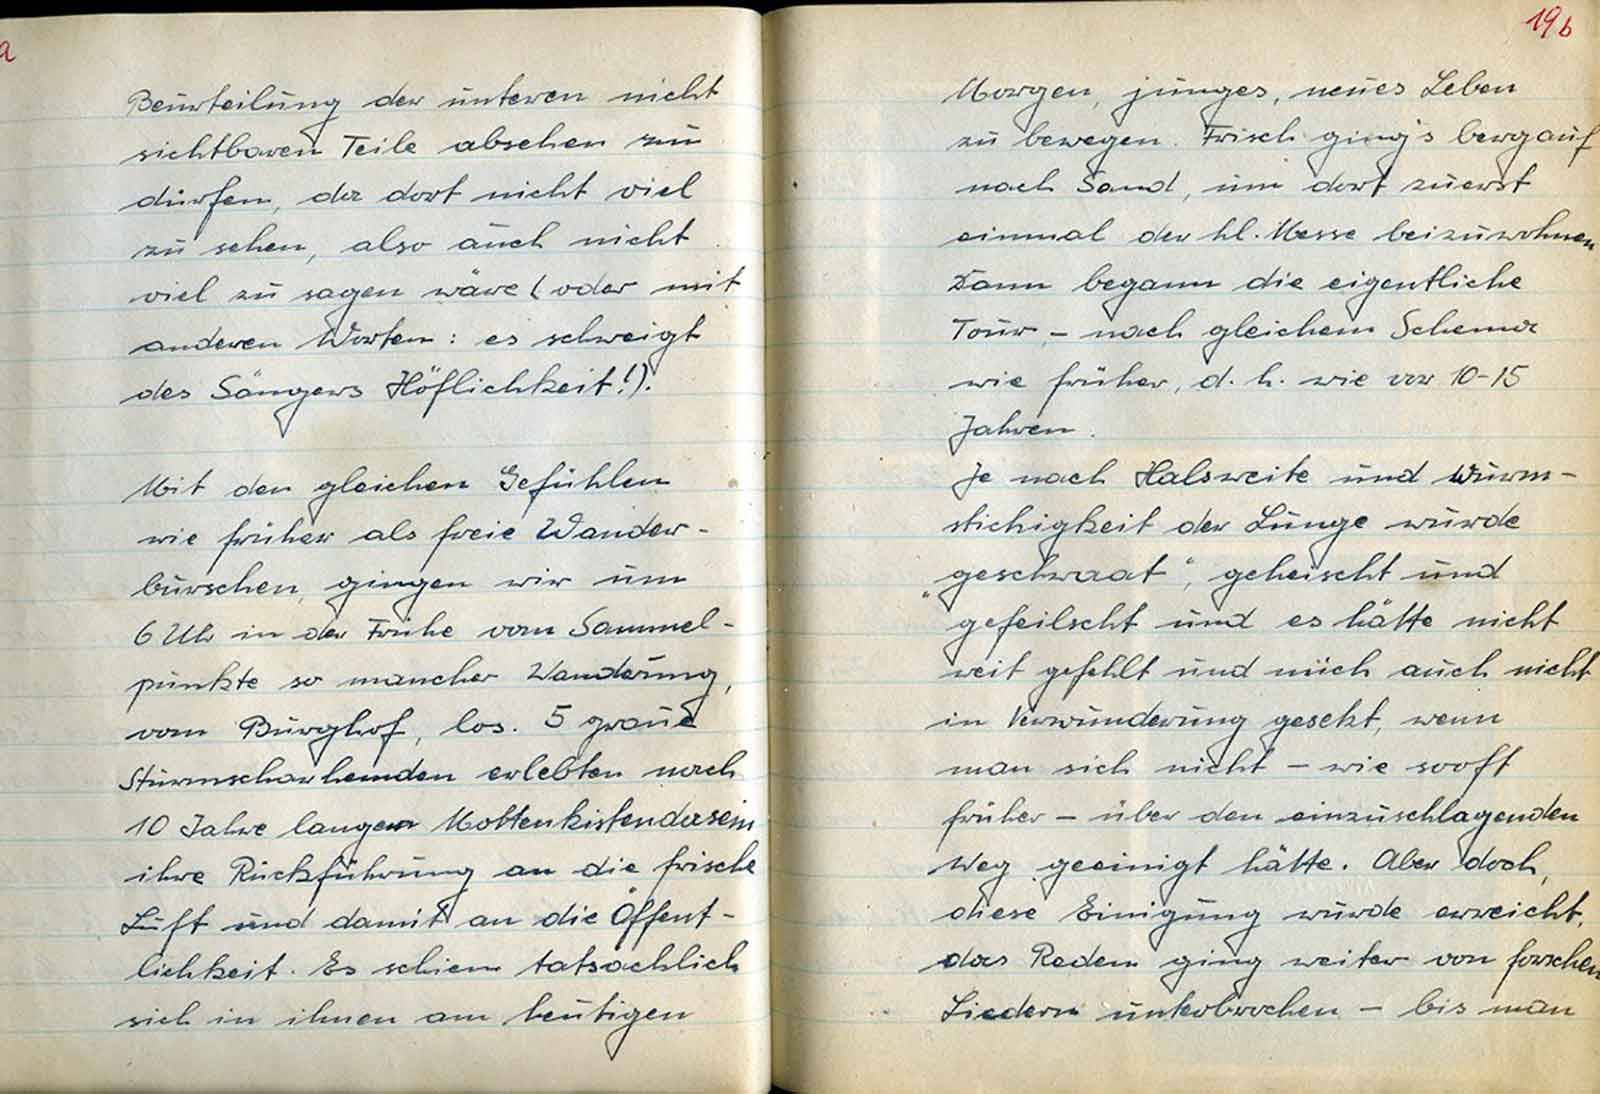 a
Beurteilung der unteren nicht
sichtbaren Teile absehen zu
dürfen, da dort nicht viel
zu sehen, also auch nicht
viel zu sagen wäre (oder mit
anderen Worten: es schweigt
des Sängers Höflichkeit!).
Mit den gleichen Gefühlen
wie früher als freie Wander-
burschen, gingen wir um
6 Uhr in der Frühe vom Sammel-
punkte so mancher Wanderung,
vom Burghof, los. 5 graue
Sturmscharhemden erlebten nach
10 Jahre langem Mottenkistendasein
ihre Rückführung an die frische
Luft und damit an die Öffent-
lichkeit. Es schien tatsächlich
sich in ihnen am heutigen
19b
Morgen, junges, neues Leben
zu bewegen. Frisch ging's bergauf
nach Sand, um dort zuerst
einmal der hl. Messe beizuwohnen
Dann begann die eigentliche
Tour, – nach gleichem Schema
wie früher, d. h. wie vor 10-15
Jahren.
Je nach Halsweite und Wurm-
stichigkeit der Lunge wurde
„geschwaat", geheischt und
gefeilscht und es hätte nicht
weit gefehlt und mich auch nicht
in Verwunderung gesetzt, wenn
man sich nicht – wie sooft
früher – über den einzuschlagenden
Weg geeinigt hätte. Aber doch,
diese Einigung wurde erreicht,
das Reden ging weiter von forschen
Liedern unterbrochen – bis man